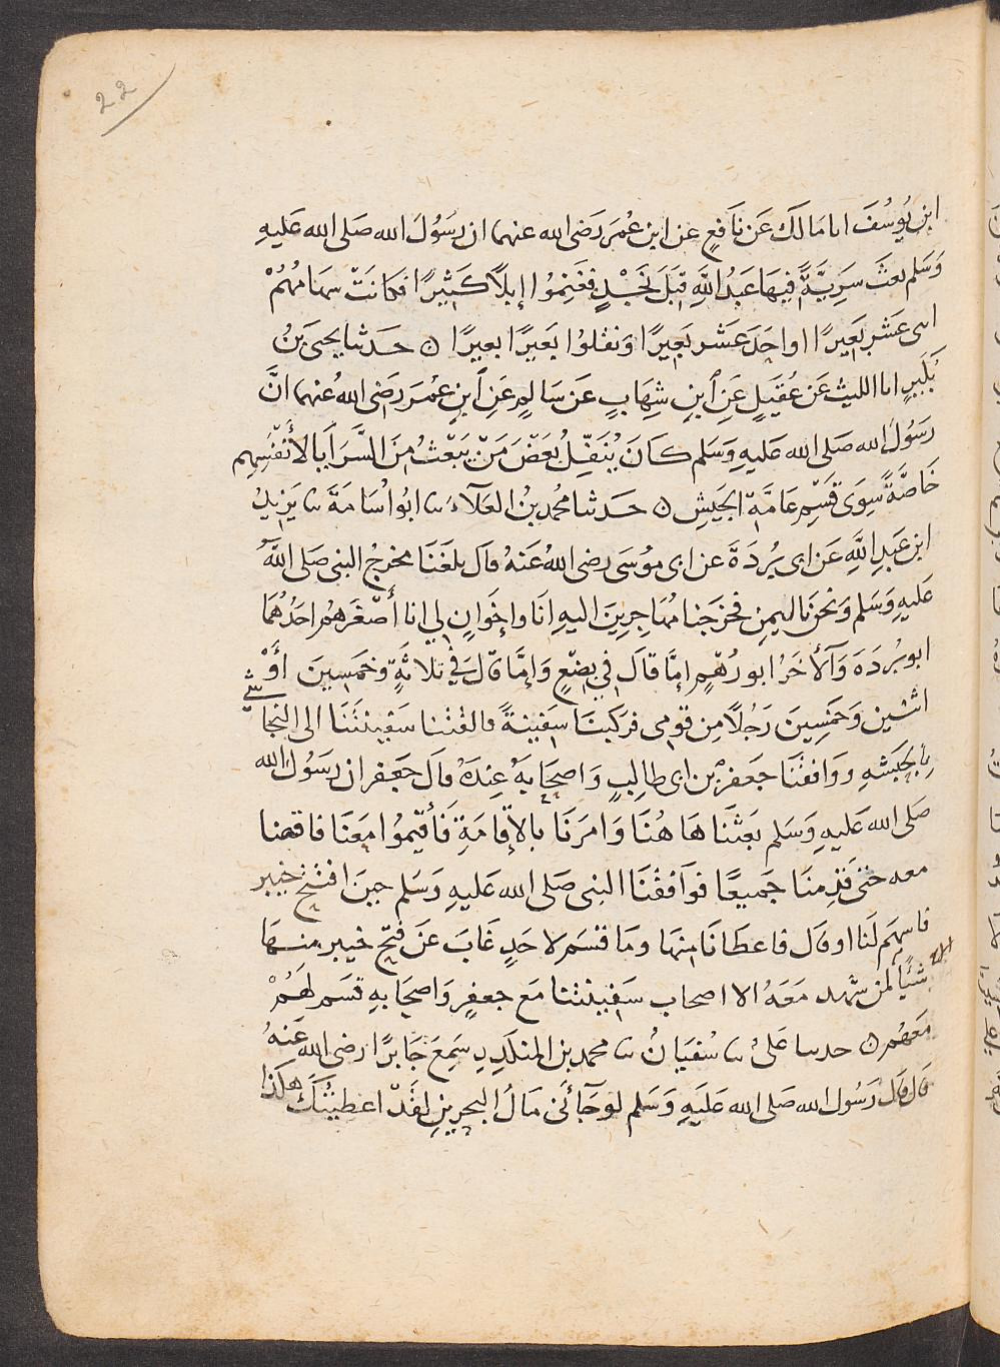 22
ابن يُوسُفَ انا مَالَك عَن نَافِعٍ عن ابن عُمَر رَضى الله عنهما ان رسَوُلَ الله صَلى الله عَليهِ
وَسَلم بعثَ سَرِيَّةً فيهَا عَبدُ اللَّهِ قبَلَ نَجْدٍ فغَنِمُوا إبلًا كثِيرًا فكانَتْ سهامُهُمْ
اثنى عَشر بَعِيرًا او احَدَ عَشر بَعِيرًا وَنفلوُا بَعيرًا بعيرًا ۞ حَدثنا يحيَى بنُ
بُكَيرٍ انا الليث عَن عُقَيلٍ عَنِ ٱبنِ شِهَابٍ عَن سَالمٍ عَنِ ٱبنِ عُمَر رَضِى اللهُ عنهما انَّ
رسَوُلَ الله صَلى الله عليهِ وَسَلم كانَ يُنَفِّلُ بَعْضَ مَنْ يَبْعَثُ مِنَ السَّرَايَا لأَنْفُسِهِم
خَاصَّةً سِوَى قَسْمِ عَامَّةِ الجَيشِ ۞ حَدثنا محُمد بنُ العَلآءِ نا ابوُ اُسَامَةَ نا يَزِيدُ
ابن عَبدِ اللَّهِ عَن ابى بُردَةَ عن ابى موُسَى رضى اللهُ عَنهُ قالَ بلغَنَا مخرجُ النبى صَلى اللهُ
عَليهِ وَسَلم وَنحن باليمنِ فخرَجنا مُهَاجِرِينَ اليهِ انَا واخَوانِ لى انا أَصْغَرهمُ احدُهُمَا
ابو بُردَه وَٱلأخَرُ ابو رُهْمٍ إمَّا قالَ فى بِضْعٍ وَإمَّا قَالَ فى ثلاثَةٍ وخمَسِينَ أَوْ
اثنين وَخَمسِينَ رَجُلًا مِن قومى فركبنَا سَفِينةً فالقتْنا سَفِينتُنَا الى النجاشى
بالحَبَشه ووَافقْنَا جَعفرَ بن ابى طالِبٍ وَاصحَابَهُ عِندَهُ قالَ جَعفر ان رسَوُلَ الله
صَلى الله عَليهِ وَسَلم بَعَثَنَا هَا هُنَا وَامرَنَا بالإقامَةِ فَأقيموُا معَنَا فاقمنا
معه حتى قَدِمنَا جَميعًا فوَافقْنَا النبى صَلى الله عَليهِ وَسَلم حِينَ افتتحَ خيبر
فاسهَم لنَا او قال فاعطَانَا منهَا ومَا قسَم لاحَدٍ غَابَ عَن فتح خيبر منهَا
شيئًا الا لمن شهد مَعَهُ الا اصحاب سَفِينتنا مَع جعفرٍ وَاصحَابهِ قسَم لهُمْ
مَعهُم ۞ حدثنا عَلىُّ نا سُفيَانُ نا محمد بن المنكَدِرِ سَمِعَ جَابرًا رضى الله عَنهُ
قال قال رَسُول الله صَلى الله عَليَهِ وَسَلم لو جَآئنى مَالُ البحرينِ لقَدْ اعطيتُكَ هكَذَا